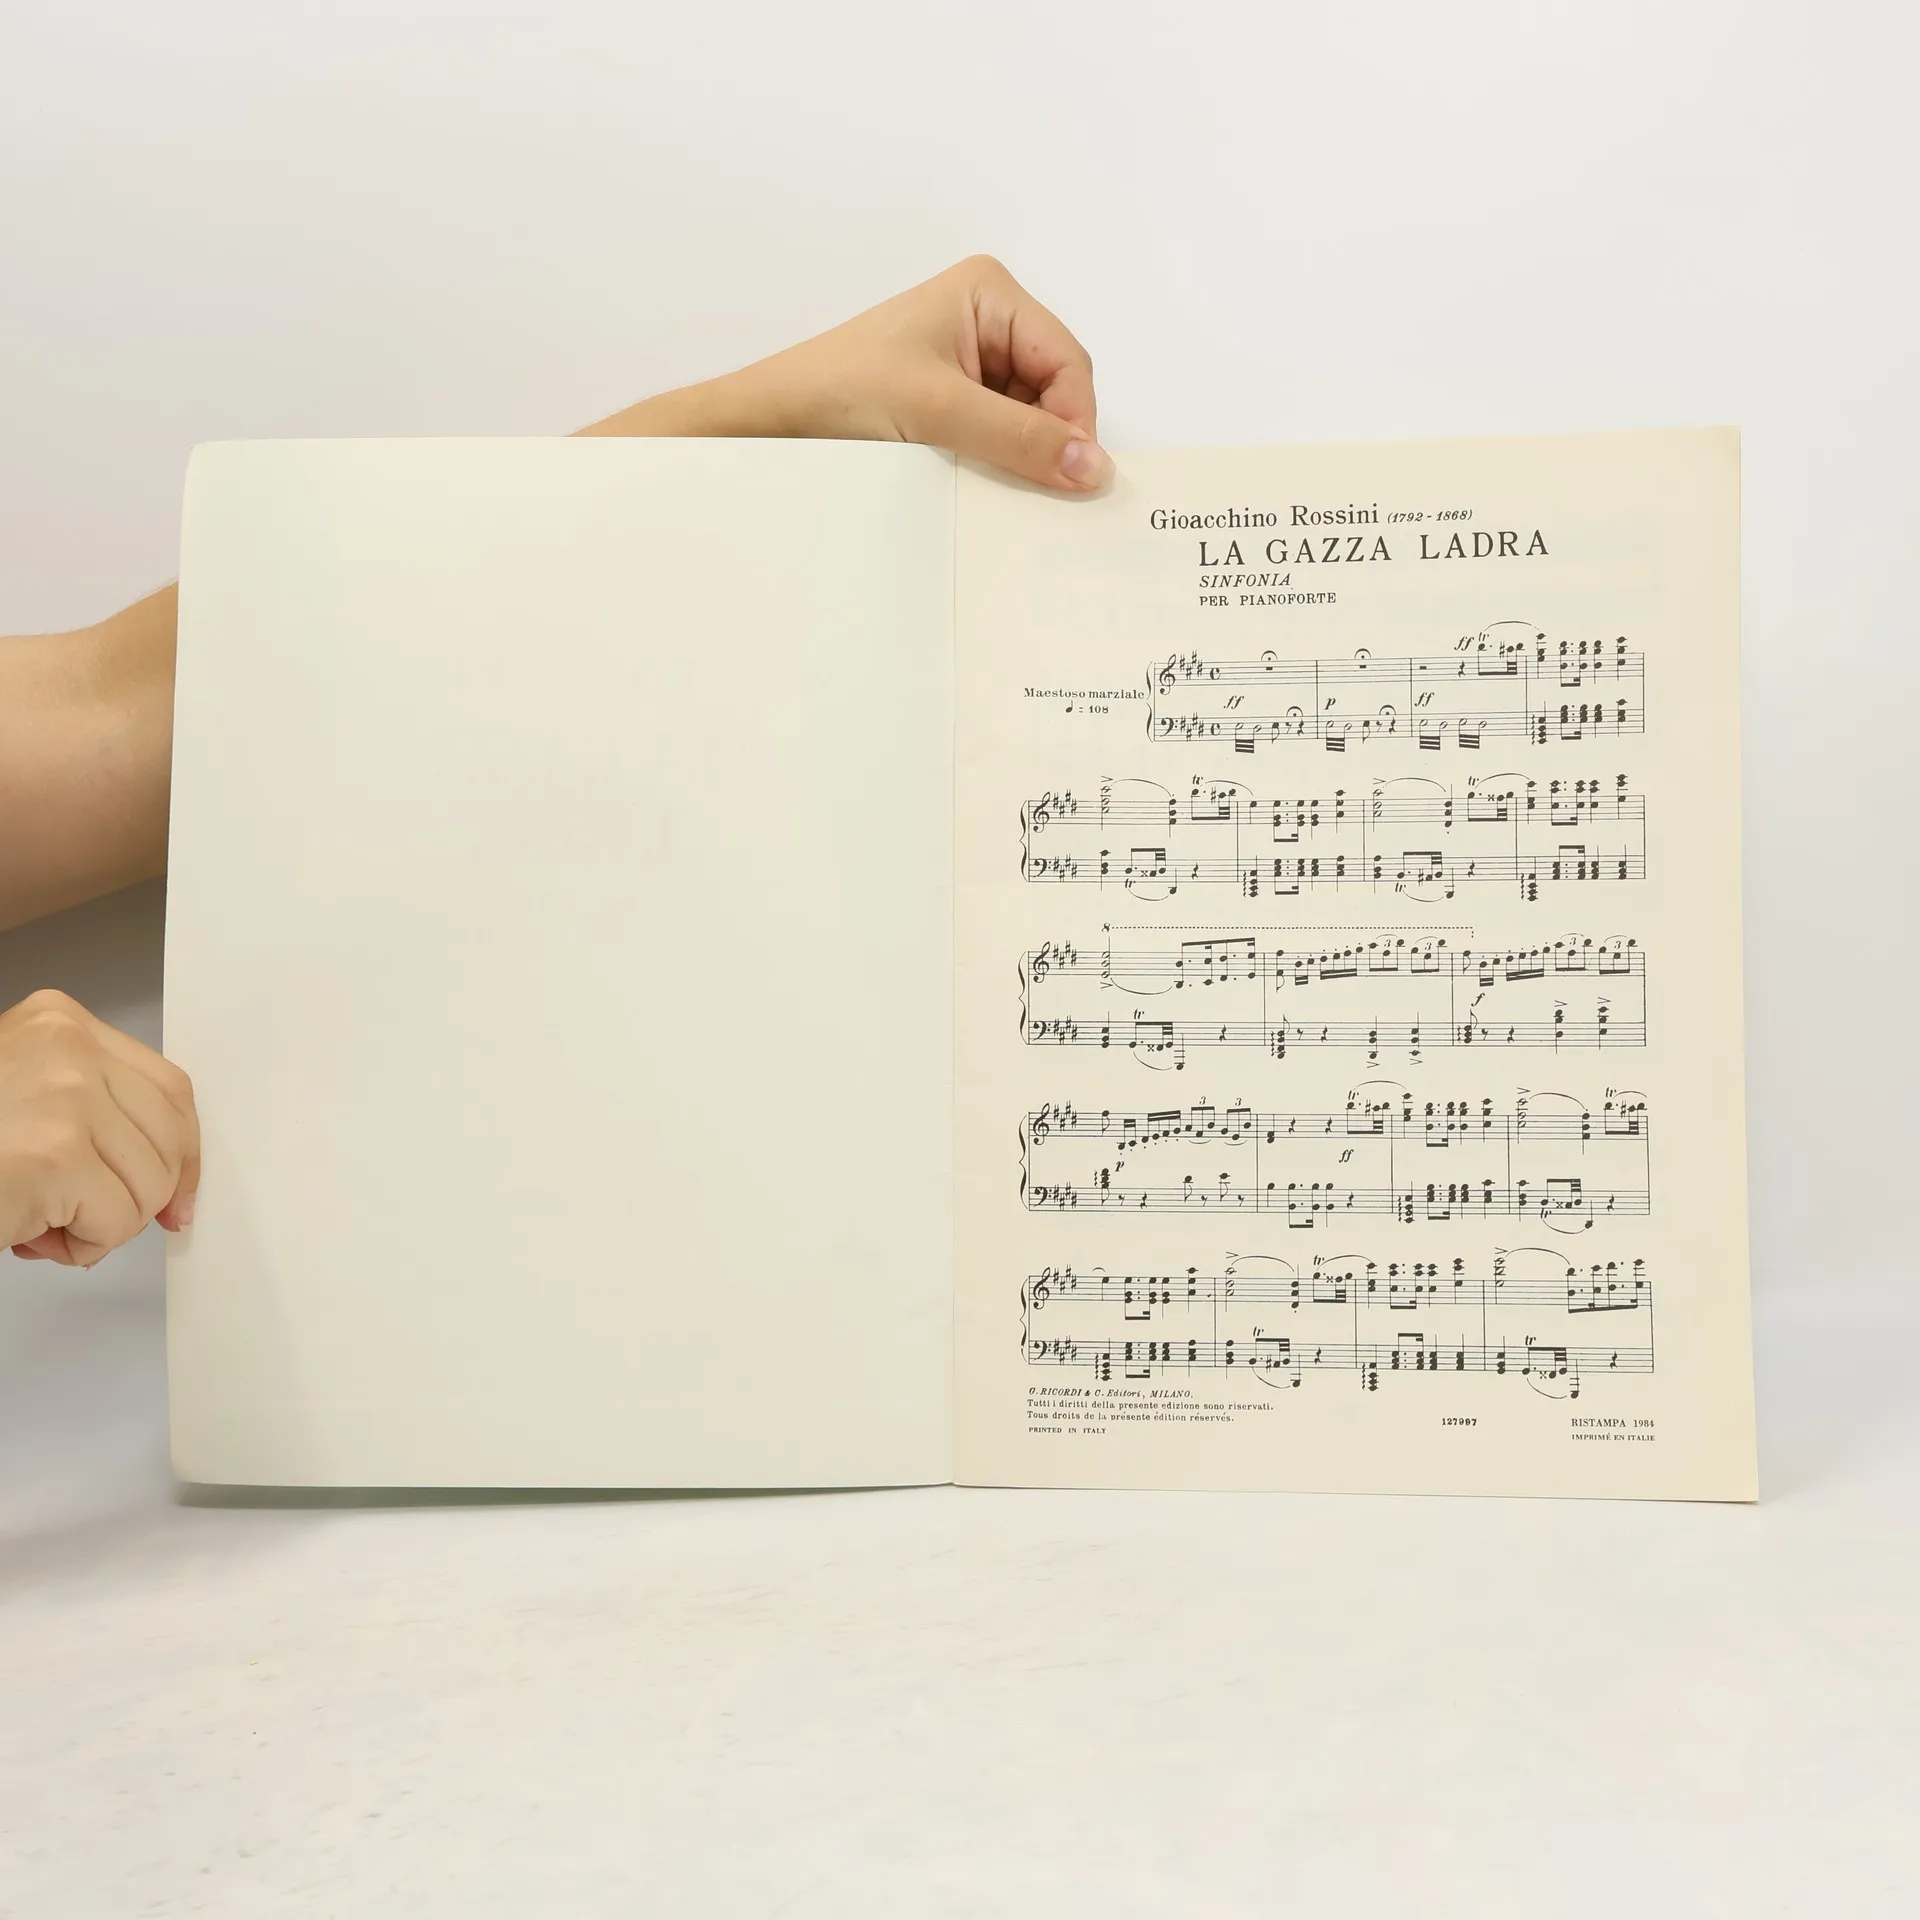 Gioacchino Rossini (1792 - 1868)
LA GAZZA LADRA
SINFONIA
PER PIANOFORTE
Maestoso marziale
♩ = 108
ff tr
ff p ff
tr tr
tr tr
8
3 3 3 3
f
tr
3 3 tr tr
p ff
tr
tr
tr tr
G. RICORDI & C. Editori, MILANO.
Tutti i diritti della presente edizione sono riservati.
Tous droits de la présente édition réservés.
PRINTED IN ITALY
127997
RISTAMPA 1984
IMPRIMÉ EN ITALIE